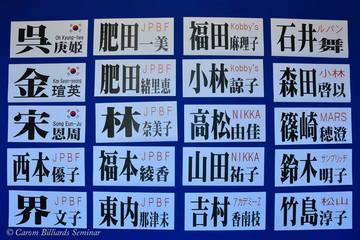 呉 Oh Kyung-hee 庚姫
肥田 JPBF 一美
福田 Kobby's 麻理子
石井 ルパン 舞
金 Kim Yeon-yeong 瑄英
肥田 JPBF 緒里恵
小林 Kobby's 諒子
森田 小林 啓以
宋 Song Eun-Ju 恩周
林 JPBF 奈美子
高松 NIKKA 由佳
篠崎 MARS 穂澄
西本 JPBF 優子
福本 JPBF 綾香
山田 NIKKA 祐子
鈴木 サンブリッヂ 明子
界 JPBF 文子
東内 JPBF 那津未
吉村 アカデミーZ 香南枝
竹島 松山 淳子
© Carom Billiards Seminar